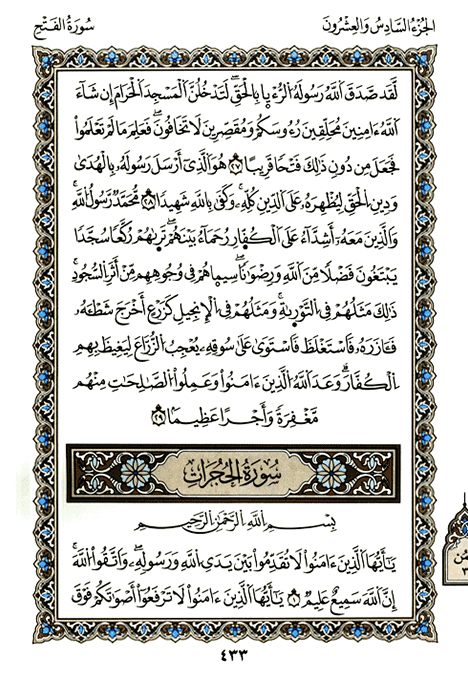 الجزء السادس والعشرون
سورة الفتح
لَّقَدْ صَدَقَ ٱللَّهُ رَسُولَهُ ٱلرُّءْيَا بِٱلْحَقِّ ۖ لَتَدْخُلُنَّ ٱلْمَسْجِدَ ٱلْحَرَامَ إِن شَآءَ
ٱللَّهُ ءَامِنِينَ مُحَلِّقِينَ رُءُوسَكُمْ وَمُقَصِّرِينَ لَا تَخَافُونَ ۖ فَعَلِمَ مَا لَمْ تَعْلَمُوا۟
فَجَعَلَ مِن دُونِ ذَٰلِكَ فَتْحًا قَرِيبًا ٢٧ هُوَ ٱلَّذِىٓ أَرْسَلَ رَسُولَهُۥ بِٱلْهُدَىٰ
وَدِينِ ٱلْحَقِّ لِيُظْهِرَهُۥ عَلَى ٱلدِّينِ كُلِّهِۦ ۚ وَكَفَىٰ بِٱللَّهِ شَهِيدًا ٢٨ مُّحَمَّدٌ رَّسُولُ ٱللَّهِ ۚ
وَٱلَّذِينَ مَعَهُۥٓ أَشِدَّآءُ عَلَى ٱلْكُفَّارِ رُحَمَآءُ بَيْنَهُمْ ۖ تَرَىٰهُمْ رُكَّعًا سُجَّدًا
يَبْتَغُونَ فَضْلًا مِّنَ ٱللَّهِ وَرِضْوَٰنًا ۖ سِيمَاهُمْ فِى وُجُوهِهِم مِّنْ أَثَرِ ٱلسُّجُودِ ۚ
ذَٰلِكَ مَثَلُهُمْ فِى ٱلتَّوْرَىٰةِ ۚ وَمَثَلُهُمْ فِى ٱلْإِنجِيلِ كَزَرْعٍ أَخْرَجَ شَطْـَٔهُۥ
فَـَٔازَرَهُۥ فَٱسْتَغْلَظَ فَٱسْتَوَىٰ عَلَىٰ سُوقِهِۦ يُعْجِبُ ٱلزُّرَّاعَ لِيَغِيظَ بِهِمُ
ٱلْكُفَّارَ ۗ وَعَدَ ٱللَّهُ ٱلَّذِينَ ءَامَنُوا۟ وَعَمِلُوا۟ ٱلصَّٰلِحَٰتِ مِنْهُم
مَّغْفِرَةً وَأَجْرًا عَظِيمًۢا ٢٩
سورة الحجرات
بِسْمِ ٱللَّهِ ٱلرَّحْمَٰنِ ٱلرَّحِيمِ
يَٰٓأَيُّهَا ٱلَّذِينَ ءَامَنُوا۟ لَا تُقَدِّمُوا۟ بَيْنَ يَدَىِ ٱللَّهِ وَرَسُولِهِۦ ۖ وَٱتَّقُوا۟ ٱللَّهَ ۚ
إِنَّ ٱللَّهَ سَمِيعٌ عَلِيمٌ ١ يَٰٓأَيُّهَا ٱلَّذِينَ ءَامَنُوا۟ لَا تَرْفَعُوٓا۟ أَصْوَٰتَكُمْ فَوْقَ
٤٣٣